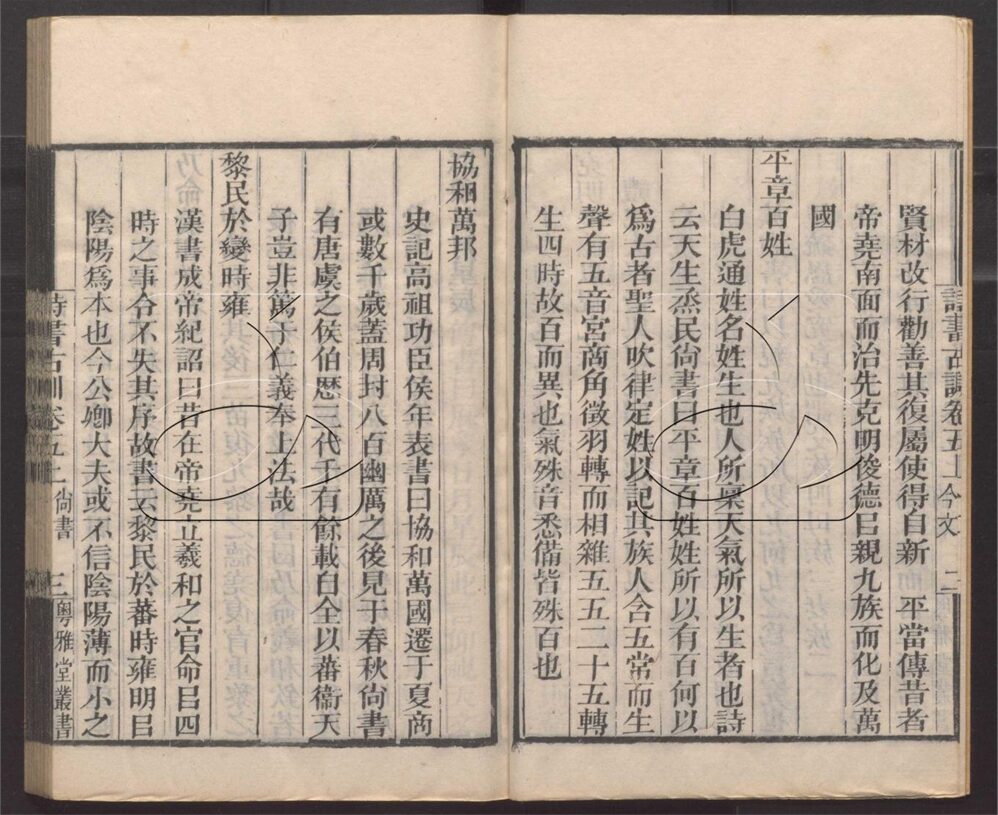 賢材改行勸善其復屬使得自新　平當傳昔者
帝堯南面而治先克明俊德㠯親九族而化及萬
國
平章百姓
白虎通姓名姓生也人所稟天氣所以生者也詩
云天生烝民尚書曰平章百姓姓所以有百何以
爲古者聖人吹律定姓以記其族人含五常而生
聲有五音宮商角徵羽轉而相雜五五二十五轉
生四時故百而異也氣殊音悉備皆殊百也
詩書古訓卷五上 今文 二
協和萬邦
史記高祖功臣侯年表書曰協和萬國遷于夏商
或數千歲蓋周封八百幽厲之後見于春秋尚書
有唐虞之侯伯歷三代千有餘載自全以蕃衞天
子豈非篤于仁義奉上法哉
黎民於變時雍
漢書成帝紀詔曰昔在帝堯立羲和之官命㠯四
時之事令不失其序故書云黎民於蕃時雍明㠯
陰陽爲本也今公卿大夫或不信陰陽薄而小之
詩書古訓卷五上 尚書 三 粵雅堂叢書